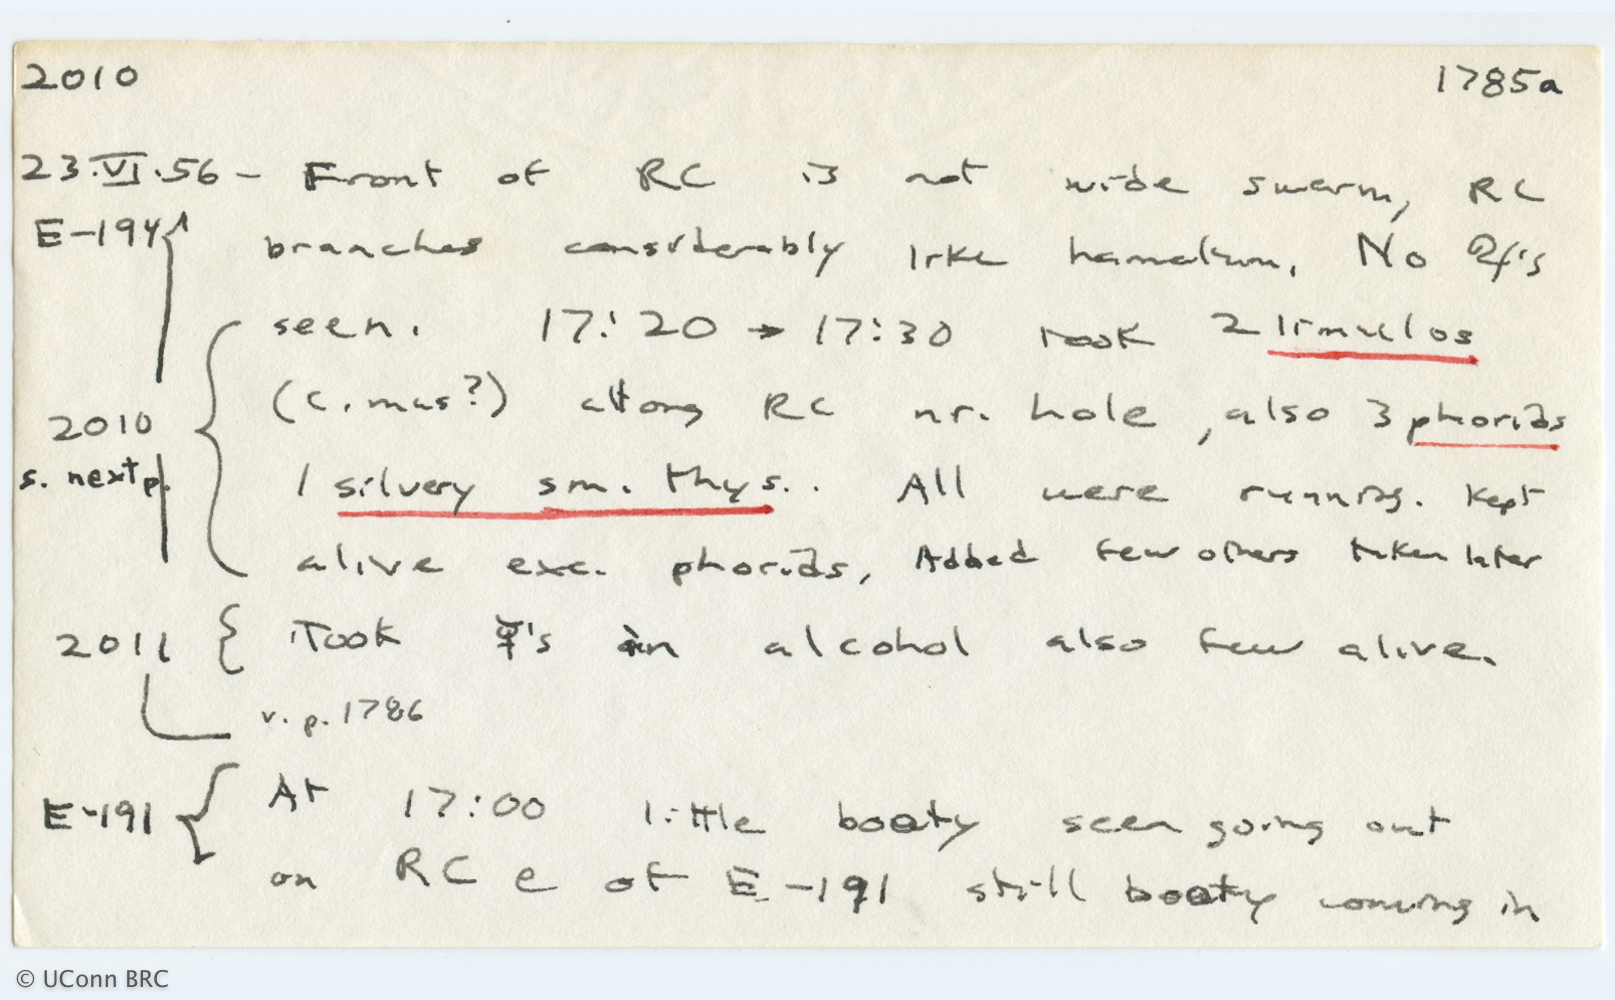 2010 1785a
23.VI.56 – Front of RC is not wide swarm, RC
E-194 branches considerably like hamatum. No ♃'s
seen. 17:20 → 17:30 took 2 limulos
(c. mus?) along RC nr. hole, also 3 phorids
2010
1 silvery sm. thys.. All were running. Kept
s. next p.
alive exc. phorids, Added few others taken later
2011 Took ☿'s in alcohol also few alive.
v. p. 1786
E-191 At 17:00 little booty seen going out
on RC e of E-191 still booty coming in
© UConn BRC